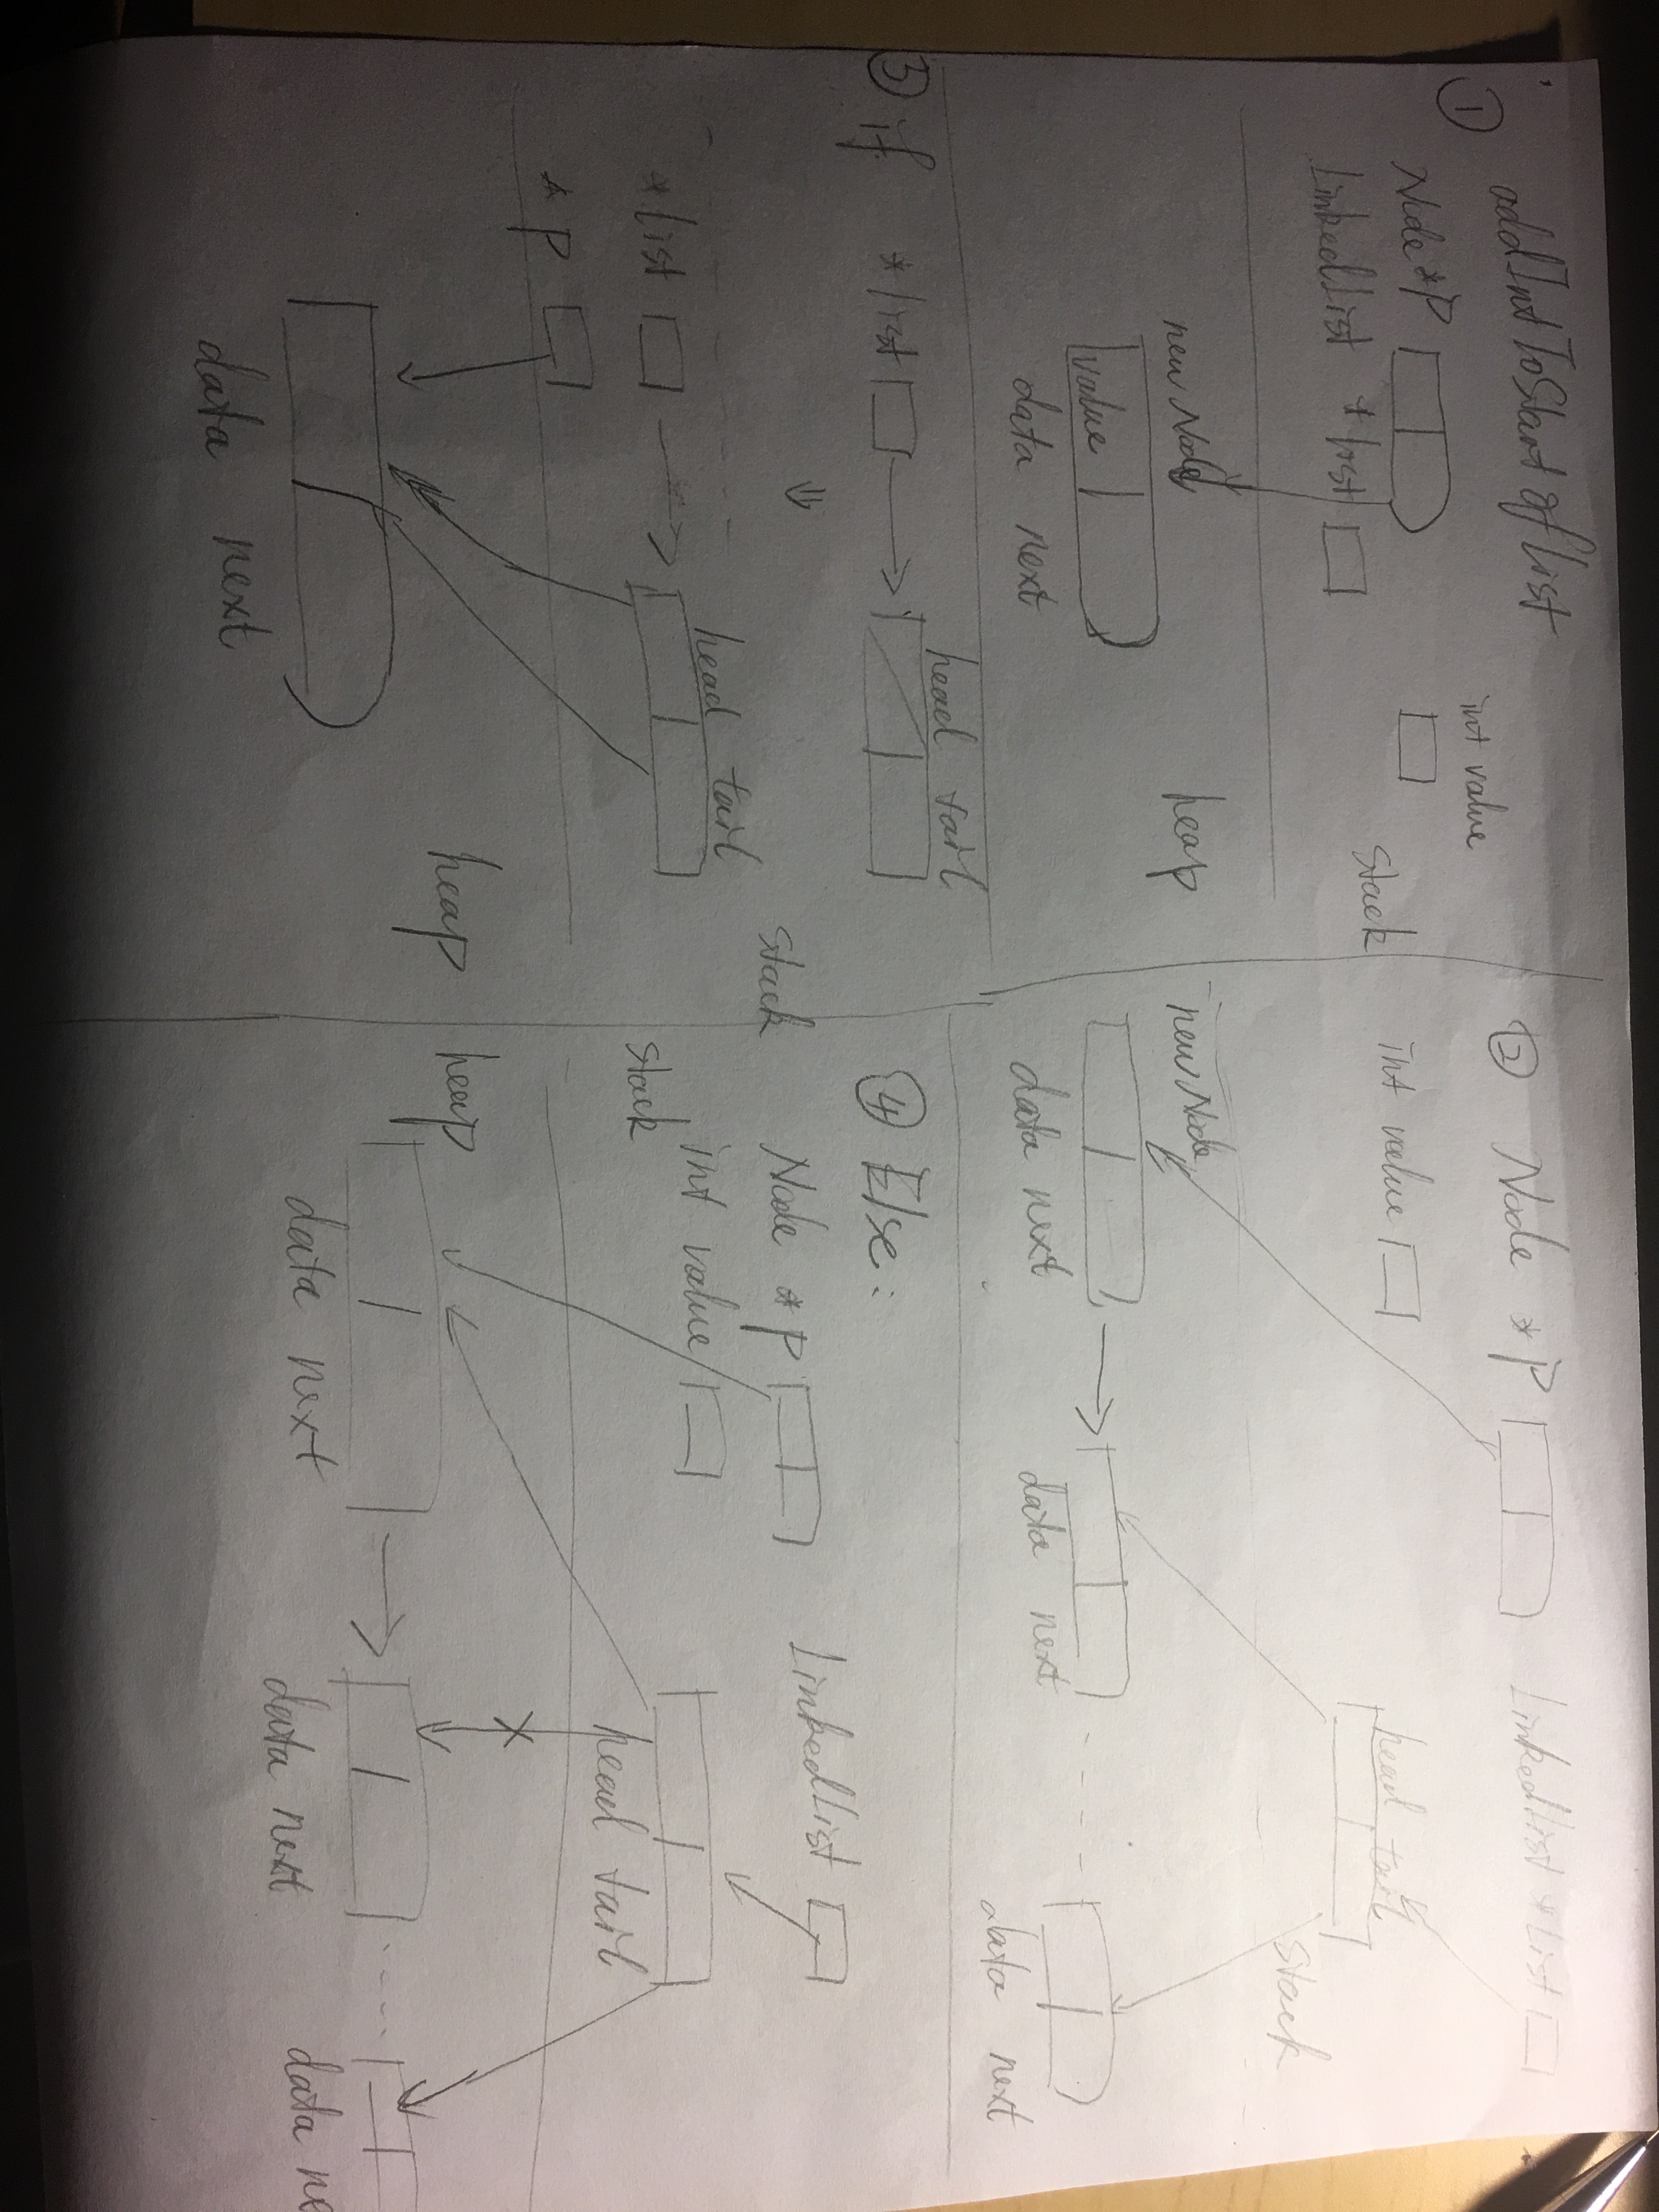 ① addIntToStartOfList
int value
Node *P
LinkedList *list
stack
new Node
heap
value
data next
② Node *P LinkedList *List
int value
head tail
stack
new Node
data next data next data next
③ if *list
head tail
⇓
stack
*list
head tail
*p
heap
data next
④ Else:
Node *P LinkedList
int value
stack
head tail
heap
data next data next data ne